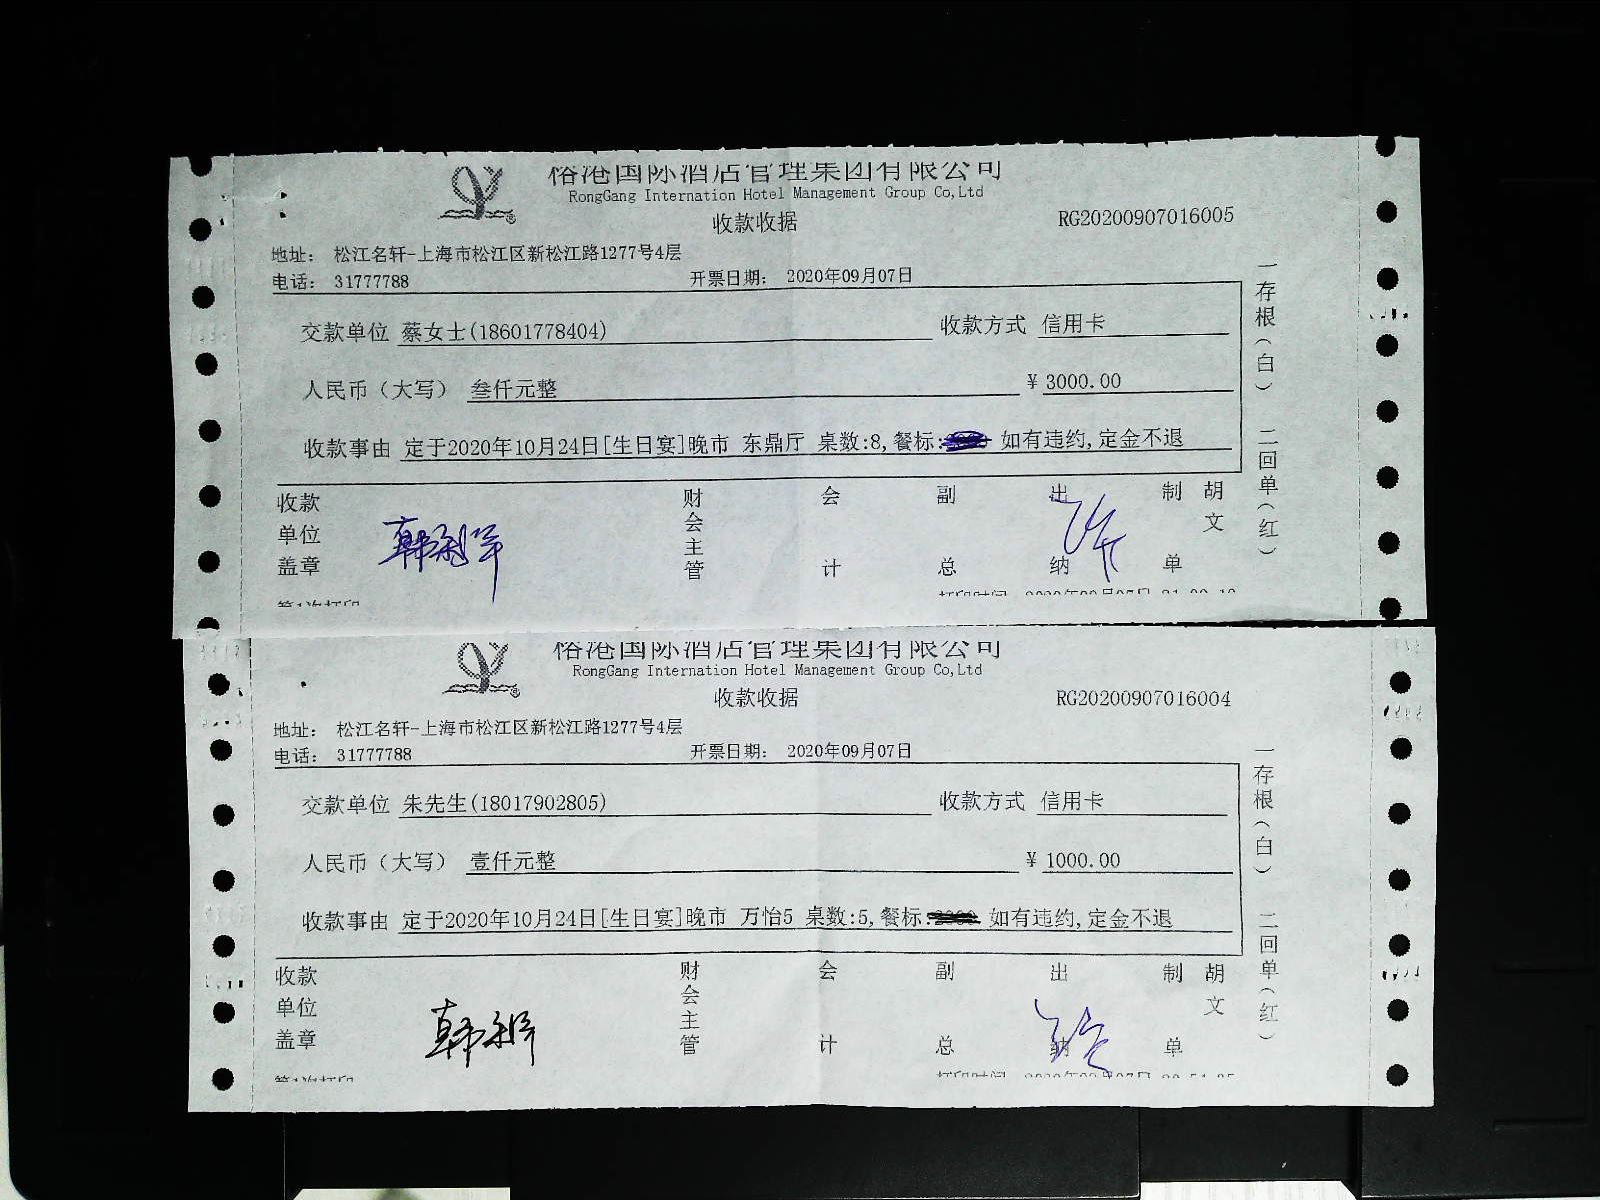 国际酒店管理集团有限公司
RongGang Internation Hotel Management Group Co,Ltd
收款收据
RG20200907016005
地址： 松江名轩-上海市松江区新松江路1277号4层
电话： 31777788
开票日期： 2020年09月07日
交款单位 蔡女士(18601778404)
收款方式 信用卡
人民币（大写） 叁仟元整
¥ 3000.00
收款事由 定于2020年10月24日[生日宴]晚市 东鼎厅 桌数:8,餐标: 如有违约,定金不退
收款单位盖章
财会主管
会计
副总
出纳
制单
胡文
一存根（白） 二回单（红）
第1次打印
打印时间
国际酒店管理集团有限公司
RongGang Internation Hotel Management Group Co,Ltd
收款收据
RG20200907016004
地址： 松江名轩-上海市松江区新松江路1277号4层
电话： 31777788
开票日期： 2020年09月07日
交款单位 朱先生(18017902805)
收款方式 信用卡
人民币（大写） 壹仟元整
¥ 1000.00
收款事由 定于2020年10月24日[生日宴]晚市 万怡5 桌数:5,餐标: 如有违约,定金不退
收款单位盖章
财会主管
会计
副总
出纳
制单
胡文
一存根（白） 二回单（红）
第1次打印
打印时间